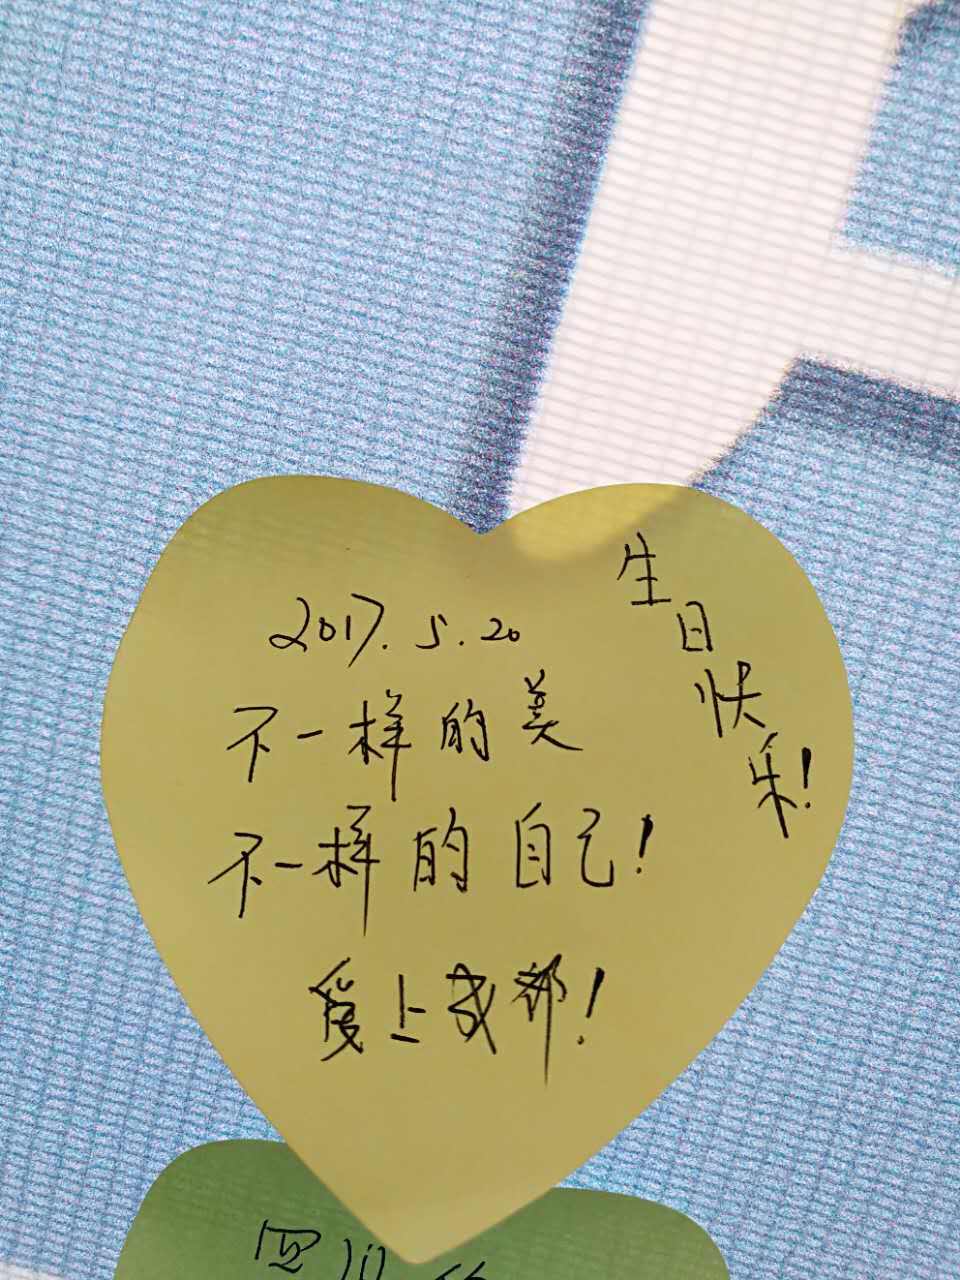 2017.5.20
不一样的美
不一样的自己!
爱上成都!
生日快乐!
四川